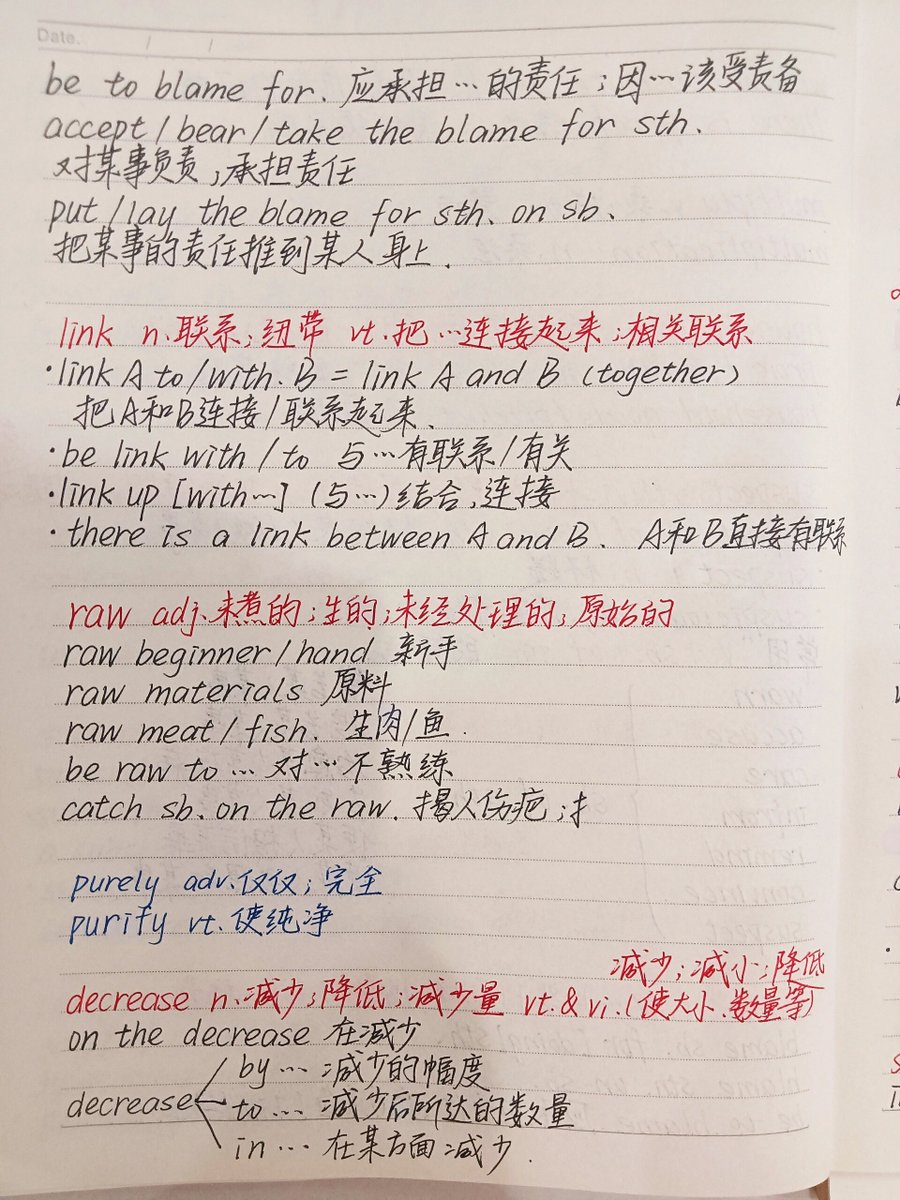 Date. / /
be to blame for. 应承担…的责任；因…该受责备
accept/bear/take the blame for sth.
对某事负责；承担责任
put/lay the blame for sth. on sb.
把某事的责任推到某人身上.
link n.联系；纽带 vt.把…连接起来；相关联系
·link A to/with. B = link A and B (together)
把A和B连接/联系起来.
·be link with/to 与…有联系/有关
·link up [with…] (与…)结合,连接
·there is a link between A and B. A和B直接有联系
raw adj.未煮的；生的；未经处理的；原始的
raw beginner/hand 新手
raw materials 原料
raw meat/fish. 生肉/鱼.
be raw to … 对…不熟练
catch sb. on the raw. 揭人伤疤；扌
purely adv.仅仅；完全
purify vt.使纯净
减少；减小；降低
decrease n.减少；降低；减少量 vt.& vi.(使大小.数量等)
on the decrease 在减少
by … 减少的幅度
decrease to … 减少后所达的数量
in … 在某方面减少.